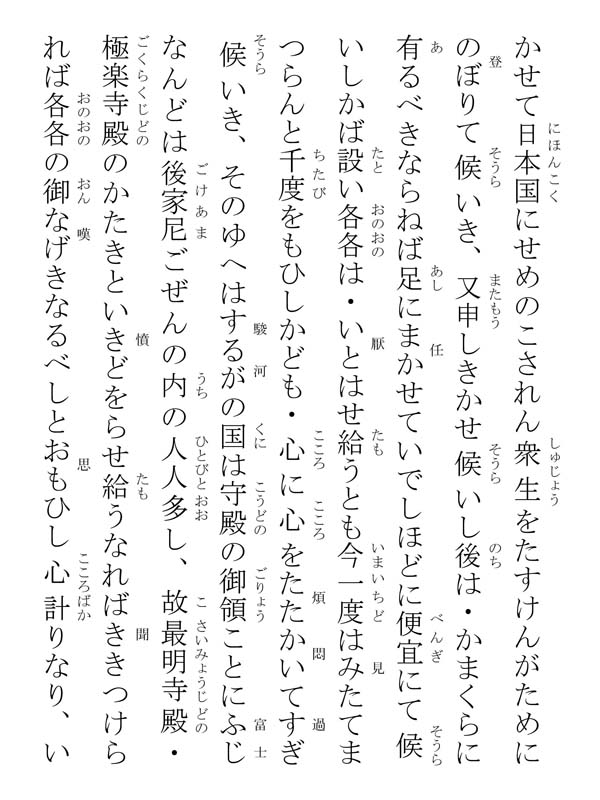 かせて日本国にせめのこされん衆生をたすけんがために
のぼりて候いき、又申しきかせ候いし後は・かまくらに
有るべきならねば足にまかせていでしほどに便宜にて候
いしかば設い各各は・いとはせ給うとも今一度はみたてま
つらんと千度をもひしかども・心に心をたたかいてすぎ
候いき、そのゆへはするがの国は守殿の御領ことにふじ
なんどは後家尼ごぜんの内の人人多し、故最明寺殿・
極楽寺殿のかたきといきどをらせ給うなればききつけら
れば各各の御なげきなるべしとおもひし心計りなり、い